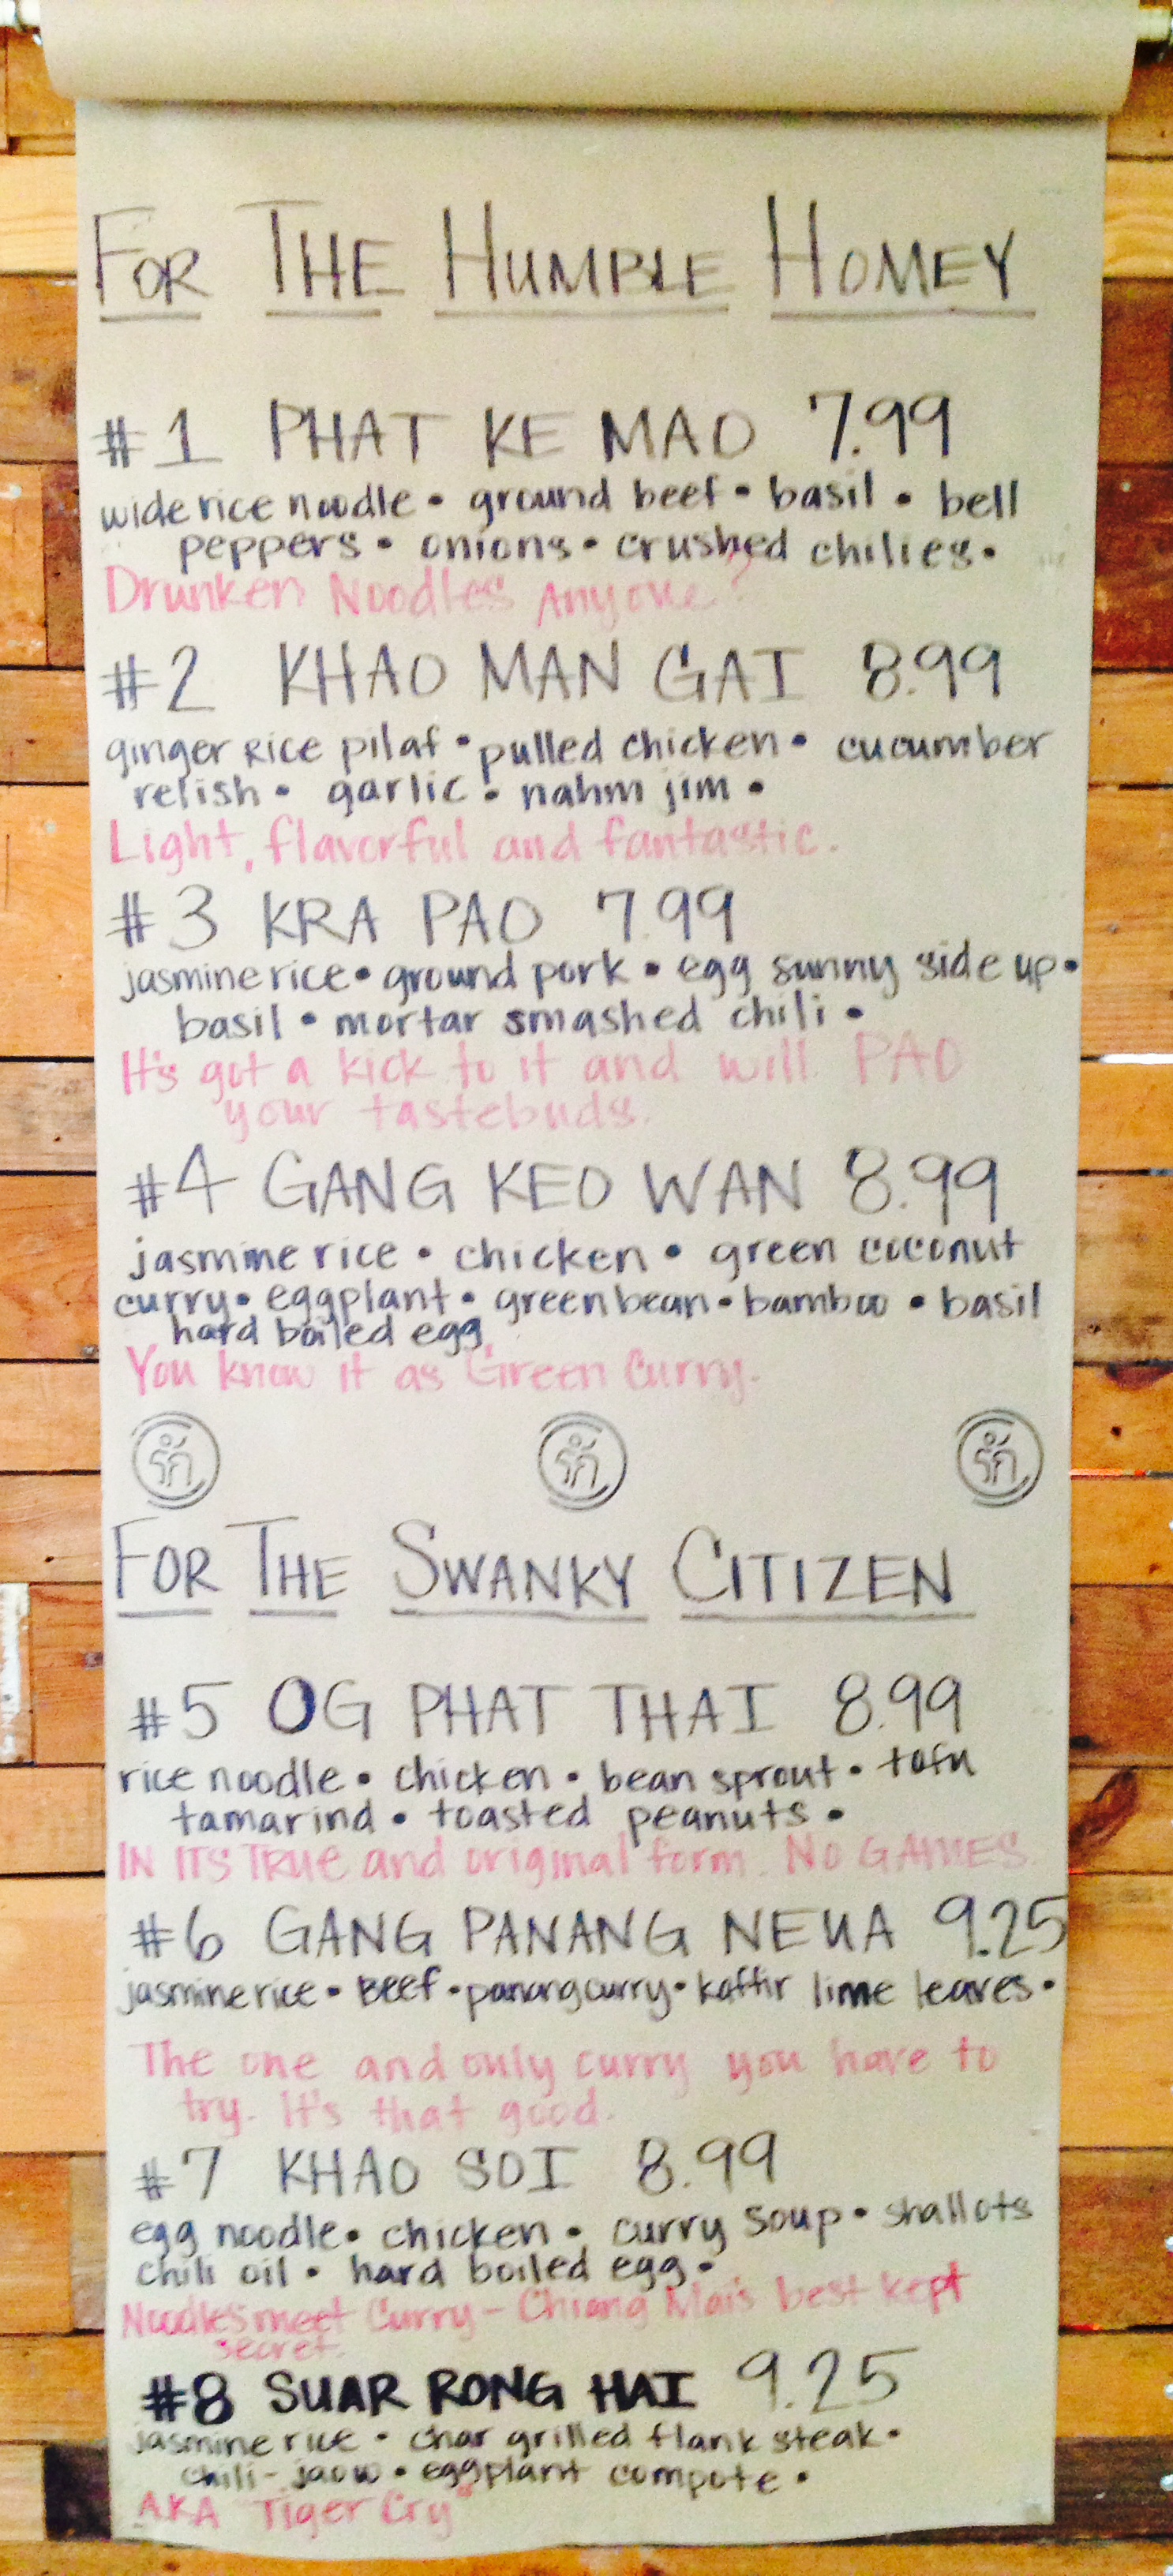 FOR THE HUMBLE HOMEY
#1 PHAT KE MAO 7.99
wide rice noodle • ground beef • basil • bell
peppers • onions • crushed chilies •
Drunken Noodles Anyone?
#2 KHAO MAN GAI 8.99
ginger Rice pilaf • pulled chicken • cucumber
relish • garlic • nahm jim •
Light, flavorful and fantastic.
#3 KRA PAO 7.99
jasmine rice • ground pork • egg sunny side up •
basil • mortar smashed chili •
It's got a kick to it and will PAO
your tastebuds.
#4 GANG KEO WAN 8.99
jasmine rice • chicken • green coconut
curry • eggplant • green bean • bamboo • basil
hard boiled egg
You know it as Green Curry.
FOR THE SWANKY CITIZEN
#5 OG PHAT THAI 8.99
rice noodle • chicken • bean sprout • tofu
tamarind • toasted peanuts •
IN ITS TRUE and original form. NO GAMES.
#6 GANG PANANG NEUA 9.25
jasmine rice • Beef • panang curry • kaffir lime leaves •
The one and only curry you have to
try. It's that good.
#7 KHAO SOI 8.99
egg noodle • chicken • curry soup • shallots
chili oil • hard boiled egg •
Noodles meet Curry - Chiang Mai's best kept
secret.
#8 SUAR RONG HAI 9.25
jasmine rice • char grilled flank steak •
chili-jaow • eggplant compote •
A.K.A "Tiger Cry"